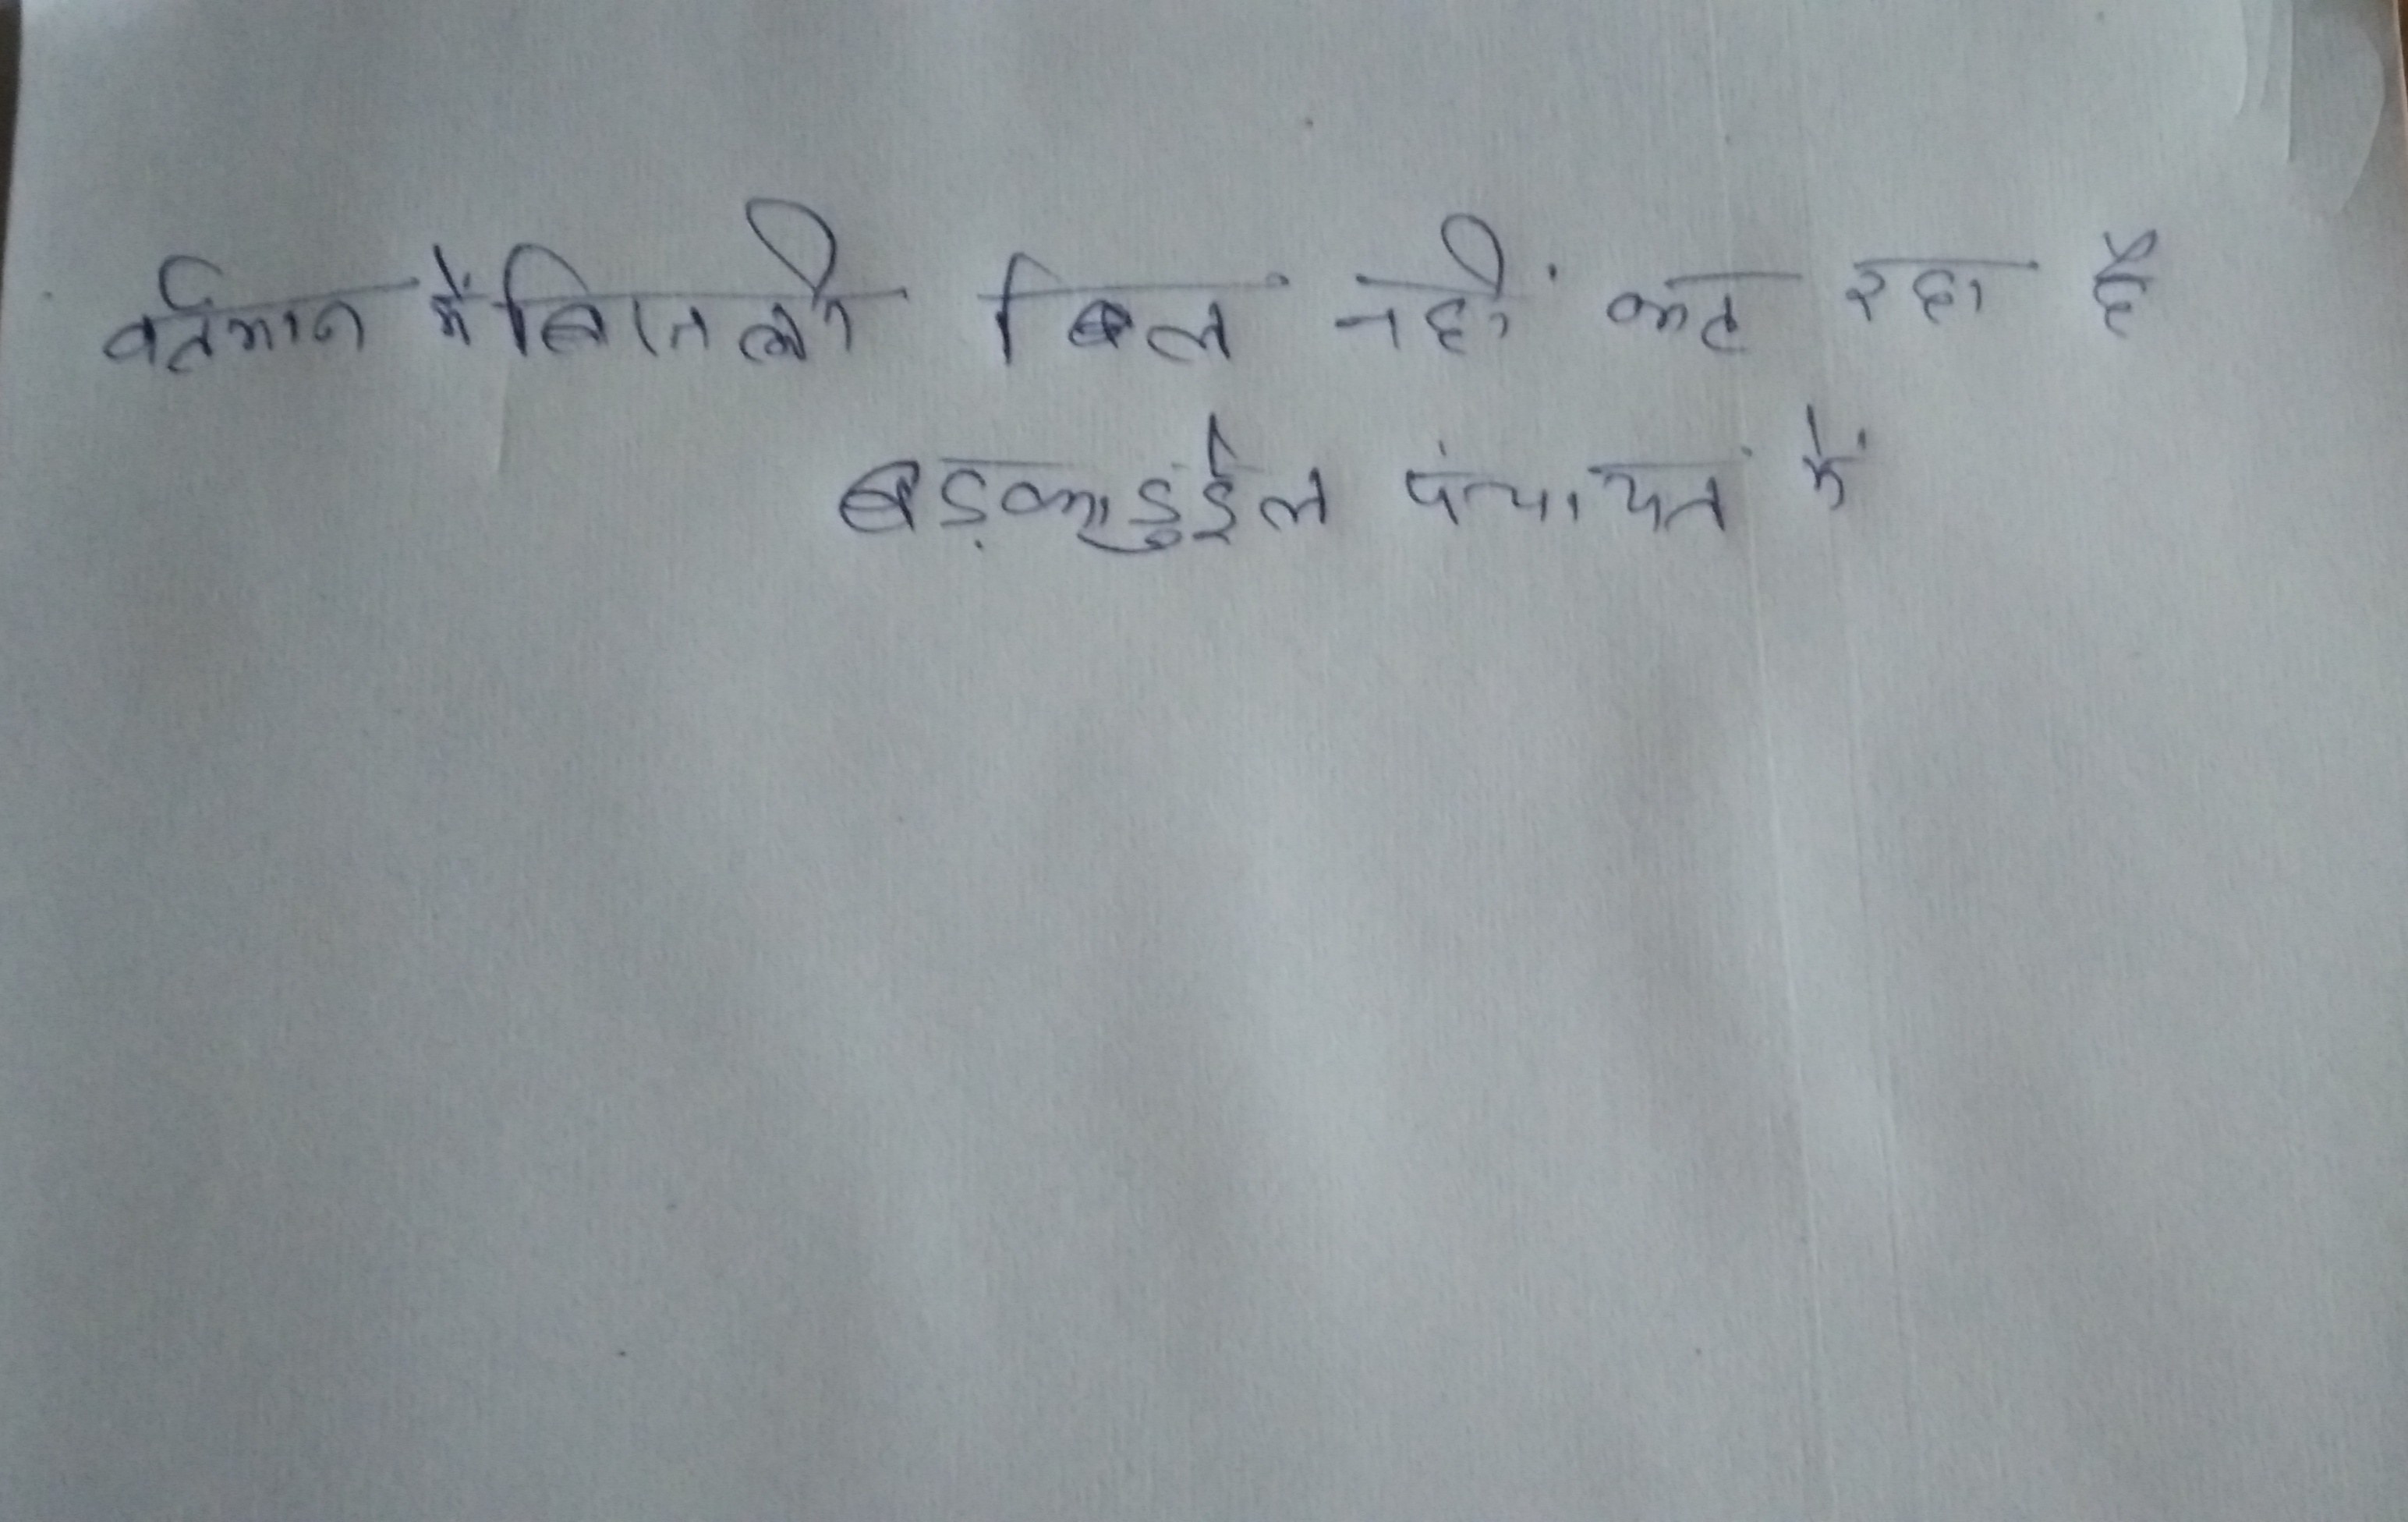 वर्तमान में बिजली बिल नहीं कट रहा है
बड़काडुईल पंचायत में